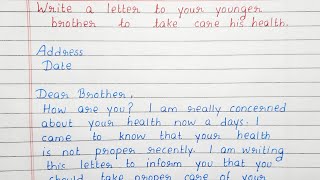 Write a letter to your younger
brother to take care his health.
Address
Date
Dear Brother,
How are you? I am really concerned
about your health now a days. I
came to know that your health
is not proper recently. I am writing
this letter to inform you that you
should take proper care of your